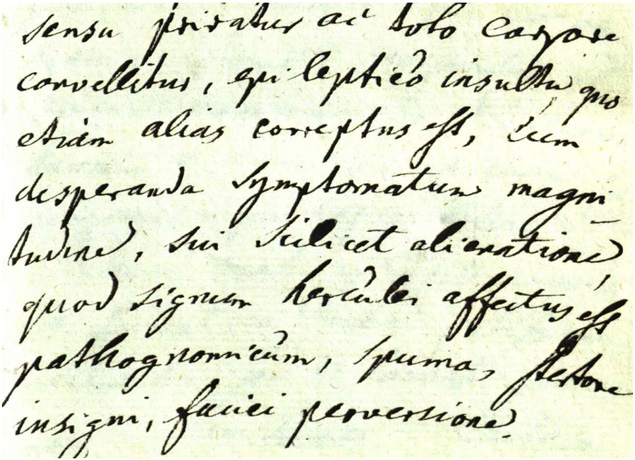 sensu privatur ac toto corpore
convellitur, epileptico insultu quo
etiam alias correptus est, cum
desperanda symptomatum magni
tudine, sui scilicet alienatione
quod signum herculei affectus est
pathognomnicum, spuma, stertore
insigni, faciei perversione